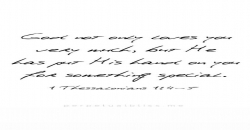 God not only loves you
very much, but He
has put His hand on you
for something special.
1 Thessalonians 1:4-5